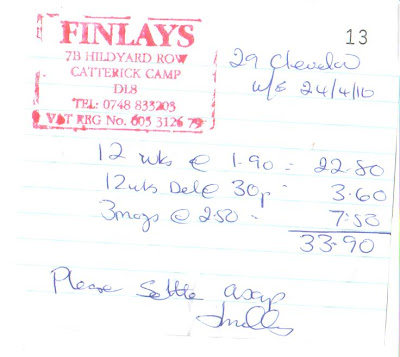 FINLAYS
7B HILDYARD ROW
CATTERICK CAMP
DL8
TEL: 0748 833203
VAT REG No. 605 3126 79
13
29
24/4/10
12 wks @ 1.90 = 22.80
12wks Del @ 30p = 3.60
3mags @ 2.50 = 7.50
33.90
Please Settle asap